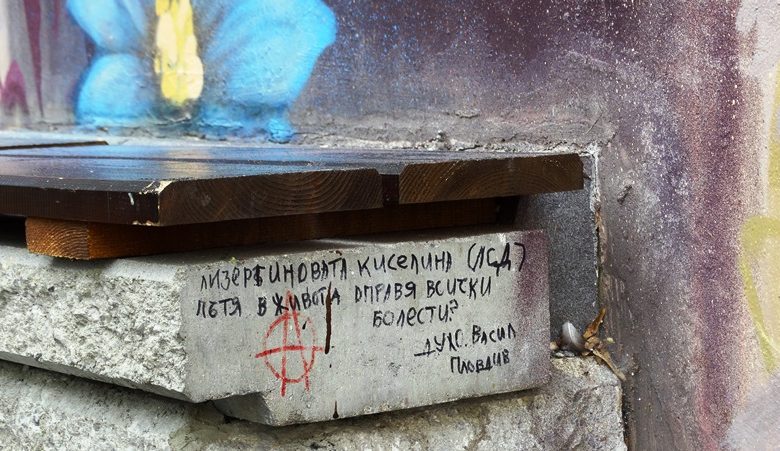 лизергиновата киселина (ЛСД)
пътя в живота оправя всички
болести?
Дух. Васил
Пловдив